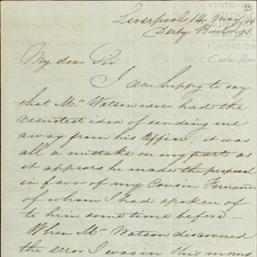 35
CENTRO D
Liverpool 14 May/44
Derby Buildgs
FUNDACIÓN
My dear Sir
I am happy to say
that Mr Watson never had the
remotest idea of sending me
away from his Office; it was
all a mistake on my part as
it appears he made the proposal
in favor of my Cousin Fernando
of whom I had spoken of
to him some time before —
When Mr Watson discovered
the error I was in this morng